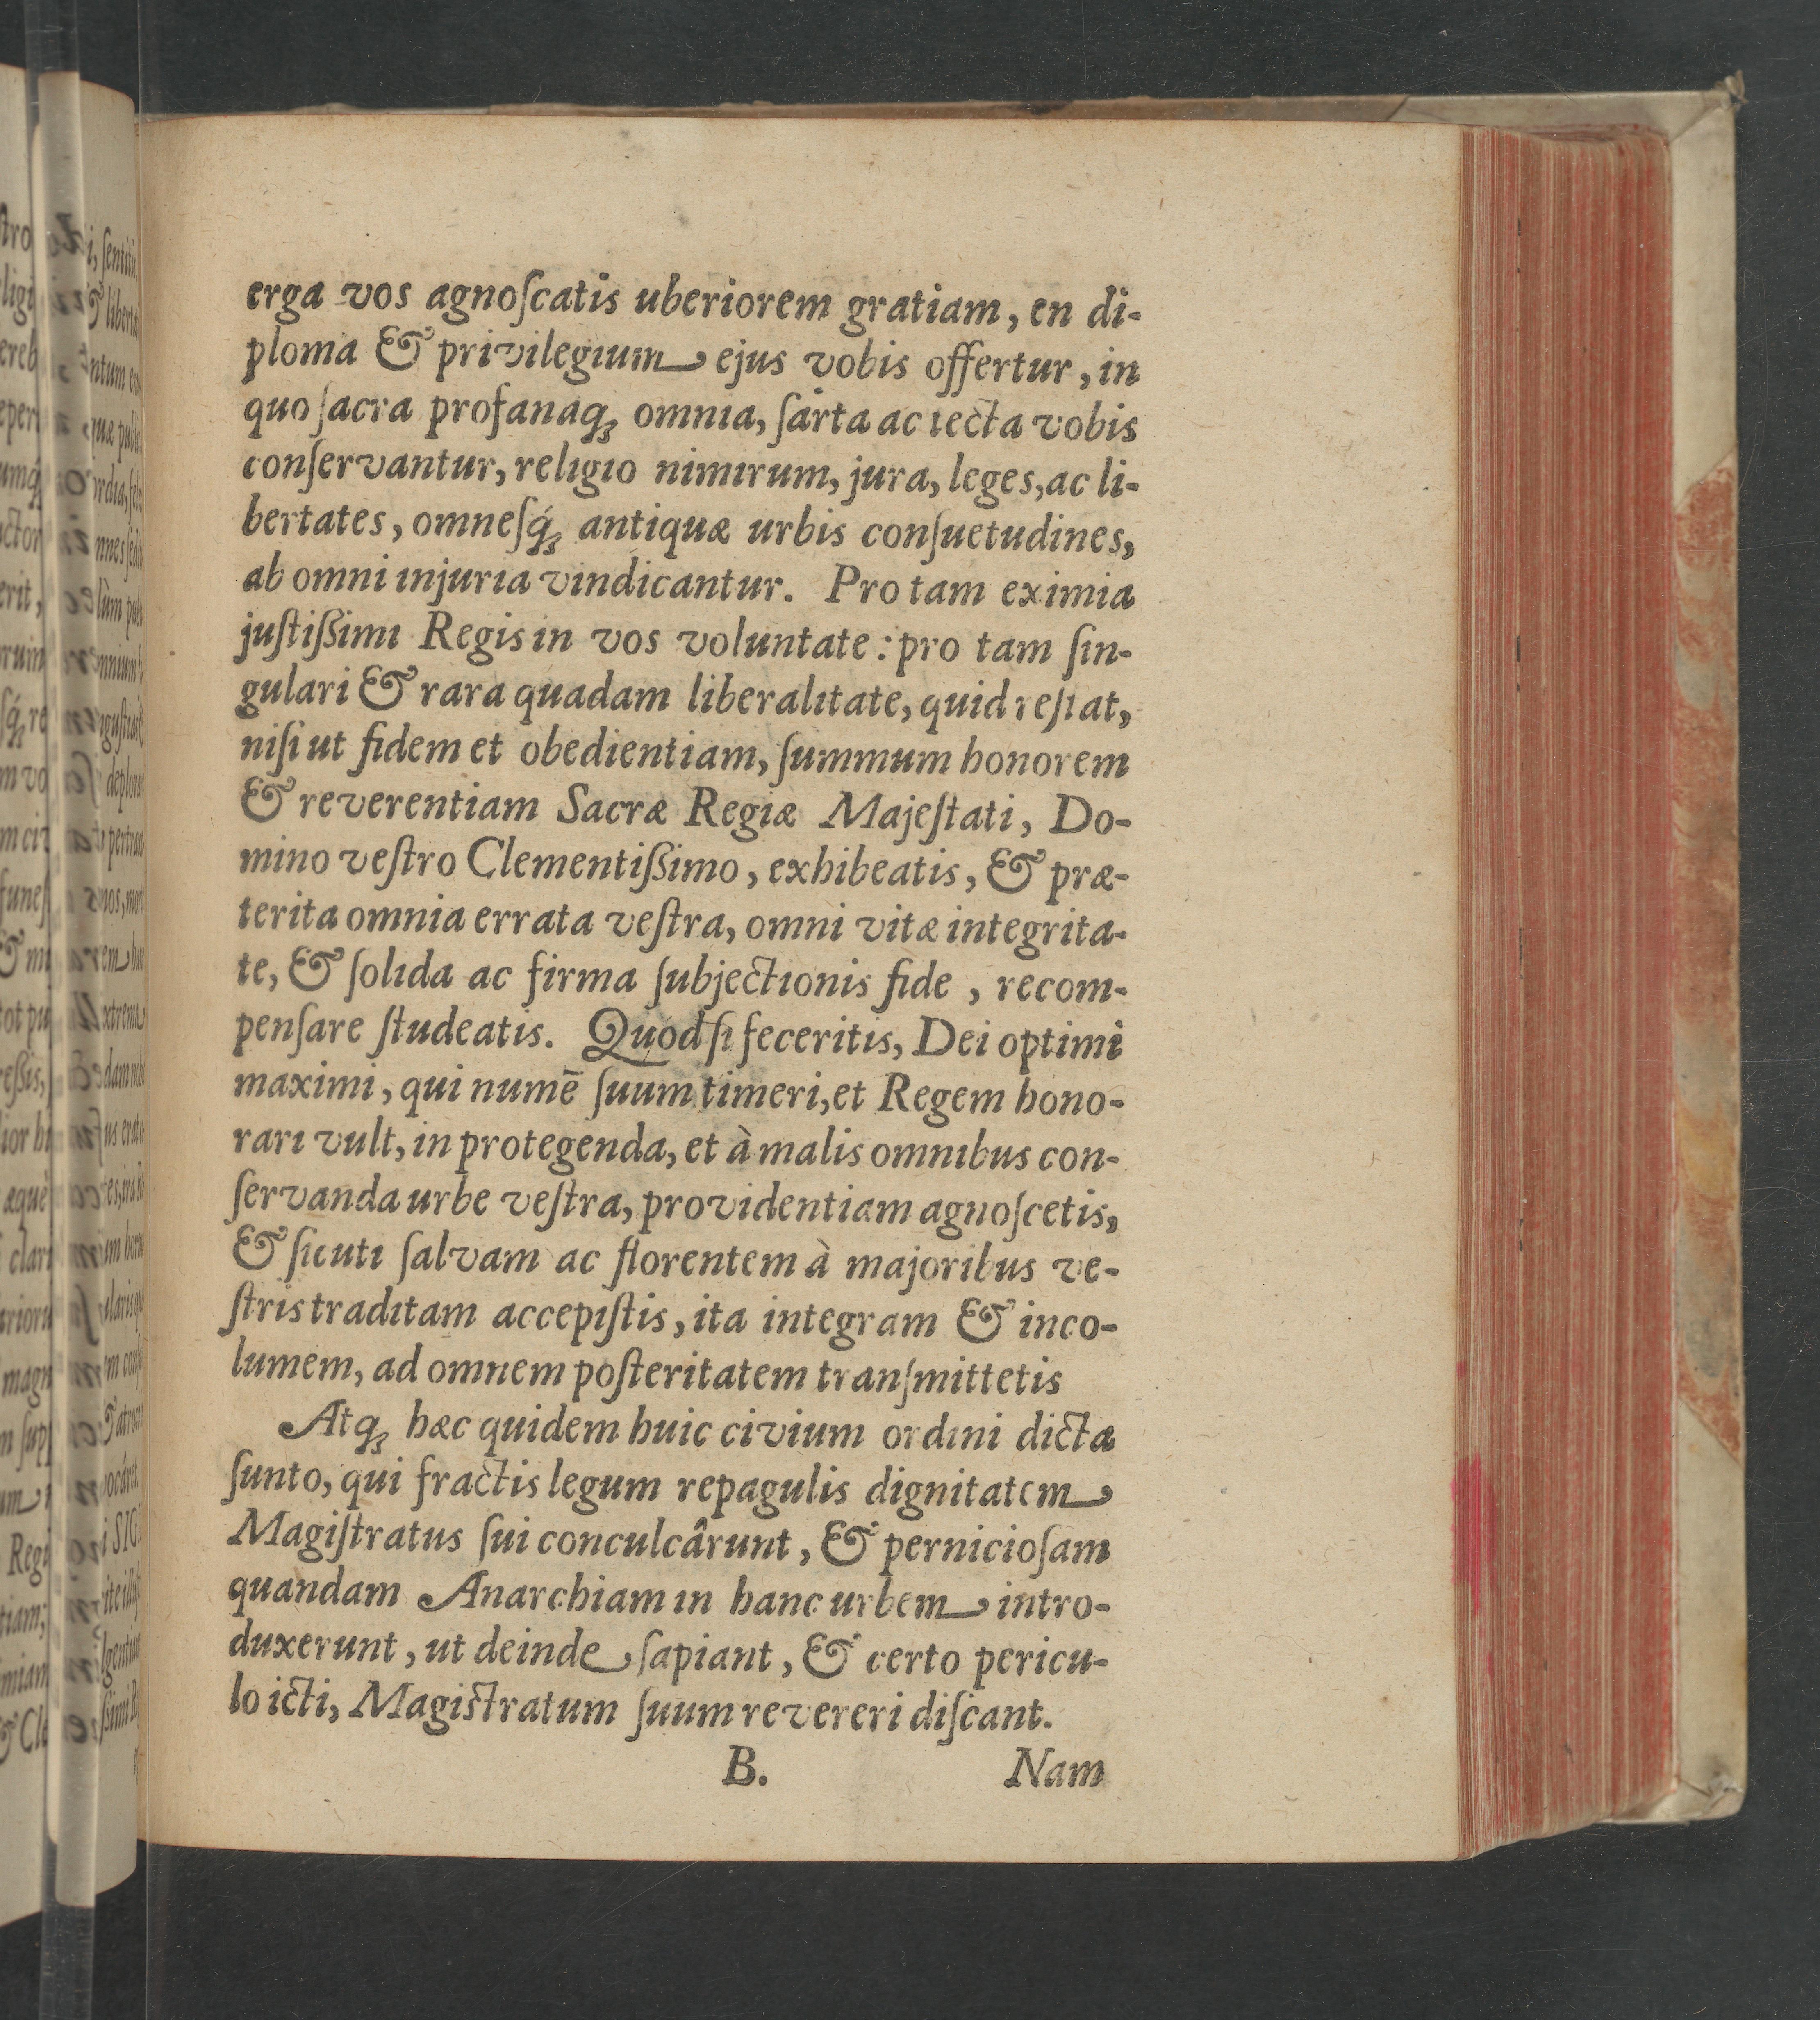 erga vos agnoſcatis uberiorem gratiam, en di-
ploma & privilegium ejus vobis offertur, in
quo ſacra profanaq́ꝫ omnia, ſarta ac tecta vobis
conſervantur, religio nimirum, jura, leges, ac li-
bertates, omneſq́ꝫ antiquæ urbis conſuetudines,
ab omni injuria vindicantur. Pro tam eximia
juſtiſſimi Regis in vos voluntate: pro tam ſin-
gulari & rara quadam liberalitate, quid reſtat,
niſi ut fidem et obedientiam, ſummum honorem
& reverentiam Sacræ Regiæ Majeſtati, Do-
mino veſtro Clementiſſimo, exhibeatis, & præ-
terita omnia errata veſtra, omni vitæ integrita-
te, & ſolida ac firma ſubjectionis fide, recom-
penſare ſtudeatis. Quod ſi feceritis, Dei optimi
maximi, qui numē ſuum timeri, et Regem hono-
rari vult, in protegenda, et à malis omnibus con-
ſervanda urbe veſtra, providentiam agnoſcetis,
& ſicuti ſalvam ac florentem à majoribus ve-
ſtris traditam accepiſtis, ita integram & inco-
lumem, ad omnem poſteritatem tranſmittetis
Atqꝫ hæc quidem huic civium ordini dicta
ſunto, qui fractis legum repagulis dignitatem
Magiſtratus ſui conculcârunt, & pernicioſam
quandam Anarchiam in hanc urbem intro-
duxerunt, ut deinde ſapiant, & certo pericu-
lo icti, Magistratum ſuum revereri diſcant.
B. Nam